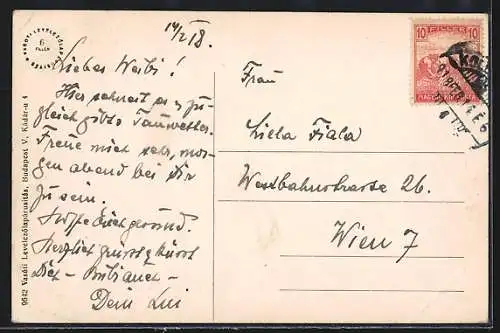 14/2 18.
Liebes Weibi!
Hier schneit es u zu-
gleich gibts Tauwetter.
Freue mich sehr, mor-
gen abend bei Dir
zu sein.
Hoffe Dich gesund.
Herzlich grüsst u küsst
Dich
Dein
Frau
Lilla Fiala
Westbahnstrasse 26.
Wien 7
10 FILLÉR 10
MAGYAR
6
FILLÉR
9642 Vasúti Levelezőlapárusítás, Budapest V., Kádár-u 4